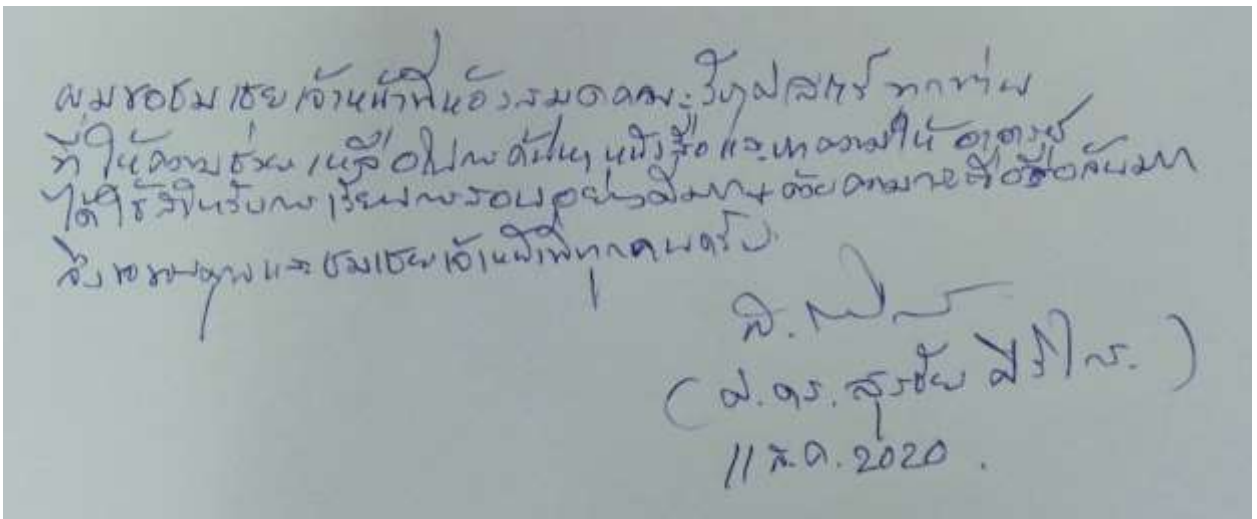 ผมขอชมเชยเจ้าหน้าที่ห้องสมุดคณะรัฐศาสตร์ ทุกท่าน
ที่ให้ความช่วยเหลือในการค้นหา หนังสือ และบทความให้ อาจารย์
ได้ใช้สำหรับการเรียนการสอนอย่างดีมาก ด้วยความ
จึงขอขอบคุณและชมเชยเจ้าหน้าที่ทุกคนครับ
(ศ.ดร. สุรชัย ศิริไกร.)
11 ส.ค. 2020.